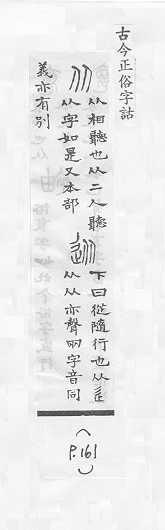 古今正俗字詁
从
从相聽也从二人聽
从字如是又本部
從
下曰從隨行也从辵
从从亦聲明字音同
義亦有別
(P.161)